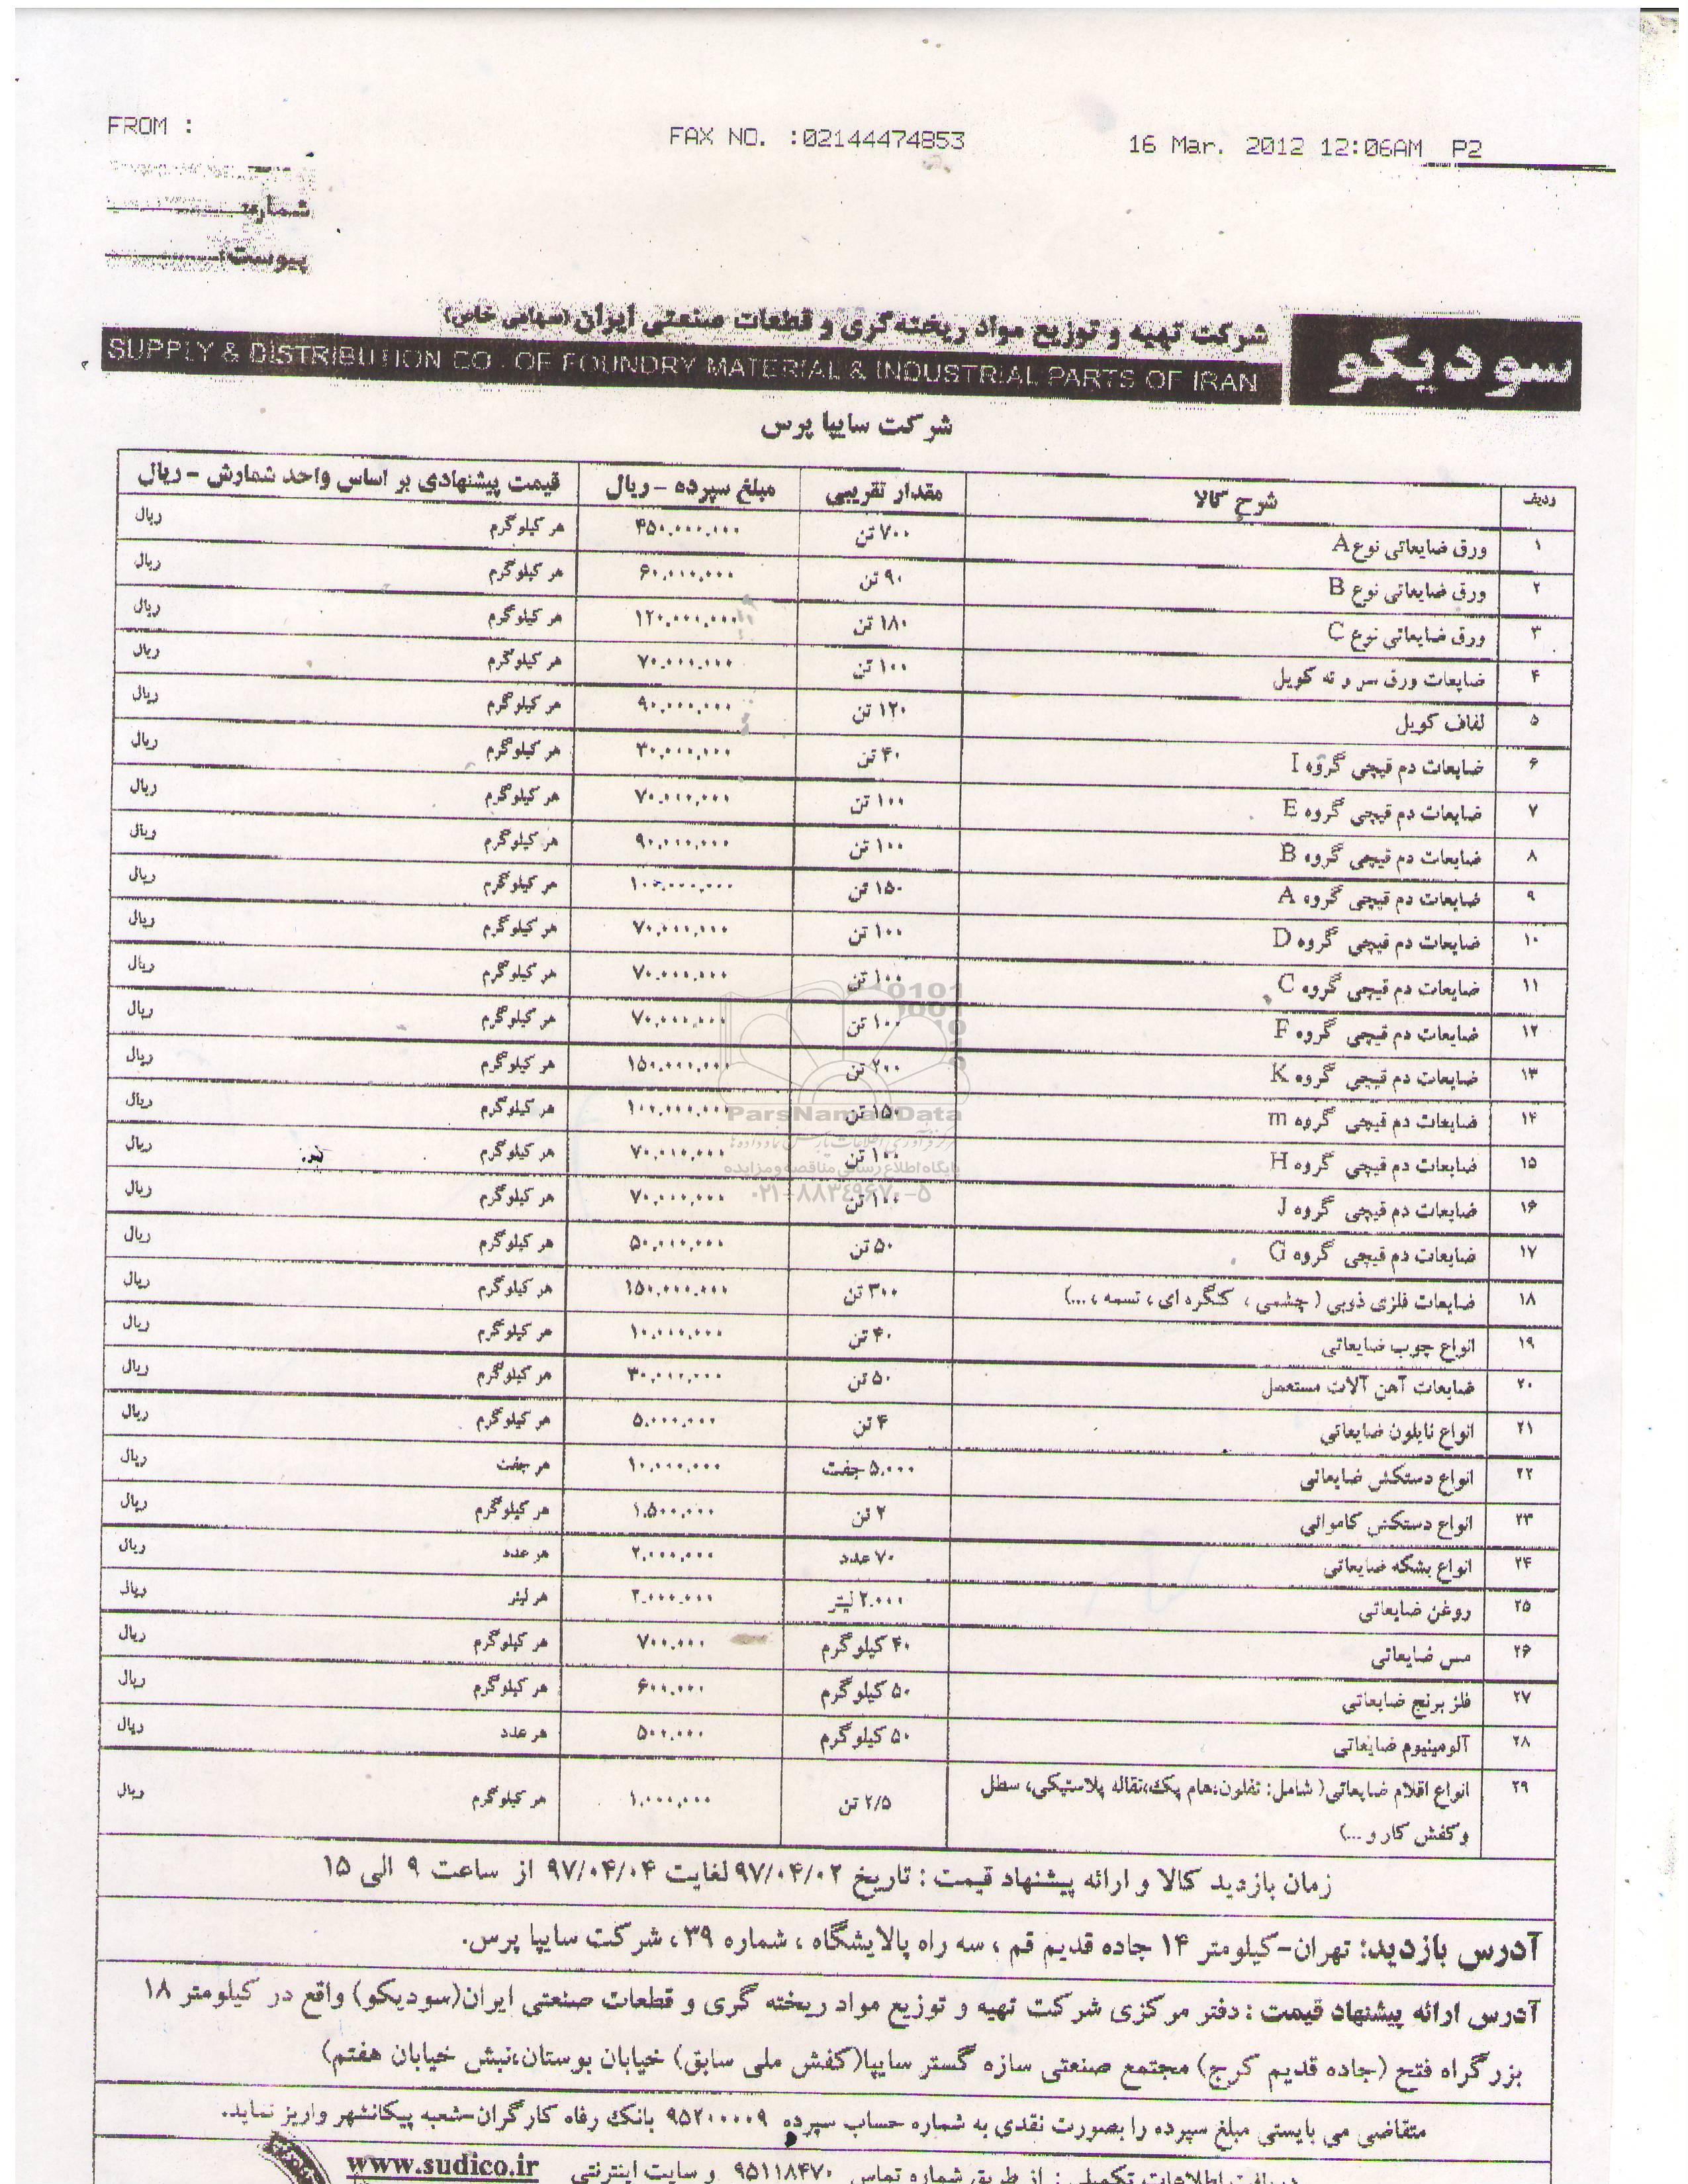 FROM :
FAX NO. :02144474853
16 Mar. 2012 12:06AM P2
شماره:
پیوست:
شرکت تهیه و توزیع مواد ریخته‌گری و قطعات صنعتی ایران (سهامی خاص)
سودیکو
SUPPLY & DISTRIBUTION CO . OF FOUNDRY MATERIAL & INDUSTRIAL PARTS OF IRAN
شرکت سایپا پرس
ردیف شرح کالا مقدار تقریبی مبلغ سپرده - ریال قیمت پیشنهادی بر اساس واحد شمارش - ریال
۱ ورق ضایعاتی نوع A ۷۰۰ تن ۴۵۰,۰۰۰,۰۰۰ هر کیلوگرم ریال
۲ ورق ضایعاتی نوع B ۹۰ تن ۶۰,۰۰۰,۰۰۰ هر کیلوگرم ریال
۳ ورق ضایعاتی نوع C ۱۸۰ تن ۱۲۰,۰۰۰,۰۰۰ هر کیلوگرم ریال
۴ ضایعات ورق سر و ته کویل ۱۰۰ تن ۷۰,۰۰۰,۰۰۰ هر کیلوگرم ریال
۵ لفاف کویل ۱۲۰ تن ۹۰,۰۰۰,۰۰۰ هر کیلوگرم ریال
۶ ضایعات دم قیچی گروه I ۴۰ تن ۳۰,۰۰۰,۰۰۰ هر کیلوگرم ریال
۷ ضایعات دم قیچی گروه E ۱۰۰ تن ۷۰,۰۰۰,۰۰۰ هر کیلوگرم ریال
۸ ضایعات دم قیچی گروه B ۱۰۰ تن ۹۰,۰۰۰,۰۰۰ هر کیلوگرم ریال
۹ ضایعات دم قیچی گروه A ۱۵۰ تن ۱۰۰,۰۰۰,۰۰۰ هر کیلوگرم ریال
۱۰ ضایعات دم قیچی گروه D ۱۰۰ تن ۷۰,۰۰۰,۰۰۰ هر کیلوگرم ریال
۱۱ ضایعات دم قیچی گروه C ۱۰۰ تن ۷۰,۰۰۰,۰۰۰ هر کیلوگرم ریال
۱۲ ضایعات دم قیچی گروه F ۱۰۰ تن ۷۰,۰۰۰,۰۰۰ هر کیلوگرم ریال
۱۳ ضایعات دم قیچی گروه K ۲۰۰ تن ۱۵۰,۰۰۰,۰۰۰ هر کیلوگرم ریال
۱۴ ضایعات دم قیچی گروه m ۱۵۰ تن ۱۰۰,۰۰۰,۰۰۰ هر کیلوگرم ریال
۱۵ ضایعات دم قیچی گروه H ۱۰۰ تن ۷۰,۰۰۰,۰۰۰ هر کیلوگرم ریال
۱۶ ضایعات دم قیچی گروه J ۱۰۰ تن ۷۰,۰۰۰,۰۰۰ هر کیلوگرم ریال
۱۷ ضایعات دم قیچی گروه G ۵۰ تن ۵۰,۰۰۰,۰۰۰ هر کیلوگرم ریال
۱۸ ضایعات فلزی ذوبی ( چشمی ، کنگره ای ، تسمه ، ...) ۳۰۰ تن ۱۵۰,۰۰۰,۰۰۰ هر کیلوگرم ریال
۱۹ انواع چوب ضایعاتی ۴۰ تن ۱۰,۰۰۰,۰۰۰ هر کیلوگرم ریال
۲۰ ضایعات آهن آلات مستعمل ۵۰ تن ۳۰,۰۰۰,۰۰۰ هر کیلوگرم ریال
۲۱ انواع نایلون ضایعاتی ۴ تن ۵,۰۰۰,۰۰۰ هر کیلوگرم ریال
۲۲ انواع دستکش ضایعاتی ۵,۰۰۰ جفت ۱۰,۰۰۰,۰۰۰ هر جفت ریال
۲۳ انواع دستکش کاموائی ۲ تن ۱,۵۰۰,۰۰۰ هر کیلوگرم ریال
۲۴ انواع بشکه ضایعاتی ۷۰ عدد ۲,۰۰۰,۰۰۰ هر عدد ریال
۲۵ روغن ضایعاتی ۲,۰۰۰ لیتر ۲,۰۰۰,۰۰۰ هر لیتر ریال
۲۶ مس ضایعاتی ۴۰ کیلوگرم ۷۰۰,۰۰۰ هر کیلوگرم ریال
۲۷ فلز برنج ضایعاتی ۵۰ کیلوگرم ۶۰۰,۰۰۰ هر کیلوگرم ریال
۲۸ آلومینیوم ضایعاتی ۵۰ کیلوگرم ۵۰۰,۰۰۰ هر عدد ریال
۲۹ انواع اقلام ضایعاتی( شامل: تفلون،هام پک،نقاله پلاستیکی، سطل ۲/۵ تن ۱,۰۰۰,۰۰۰ هر کیلوگرم ریال
و کفش کار و ...)
ParsNamadData
پایگاه اطلاع رسانی مناقصه و مزایده
۰۲۱-۸۸۳۴۹۶۷۰-۵
زمان بازدید کالا و ارائه پیشنهاد قیمت : تاریخ ۹۷/۰۴/۰۲ لغایت ۹۷/۰۴/۰۴ از ساعت ۹ الی ۱۵
آدرس بازدید: تهران-کیلومتر ۱۴ جاده قدیم قم ، سه راه پالایشگاه ، شماره ۳۹ ، شرکت سایپا پرس.
آدرس ارائه پیشنهاد قیمت : دفتر مرکزی شرکت تهیه و توزیع مواد ریخته گری و قطعات صنعتی ایران(سودیکو) واقع در کیلومتر ۱۸
بزرگراه فتح (جاده قدیم کرج) مجتمع صنعتی سازه گستر سایپا(کفش ملی سابق) خیابان بوستان،نبش خیابان هفتم)
متقاضی می بایستی مبلغ سپرده را بصورت نقدی به شماره حساب سپرده ۹۵۲۰۰۰۰۹ بانک رفاه کارگران-شعبه پیکانشهر واریز نماید.
دریافت اطلاعات تکمیلی : از طریق شماره تماس ۹۵۱۱۸۴۷۰ و سایت اینترنتی www.sudico.ir